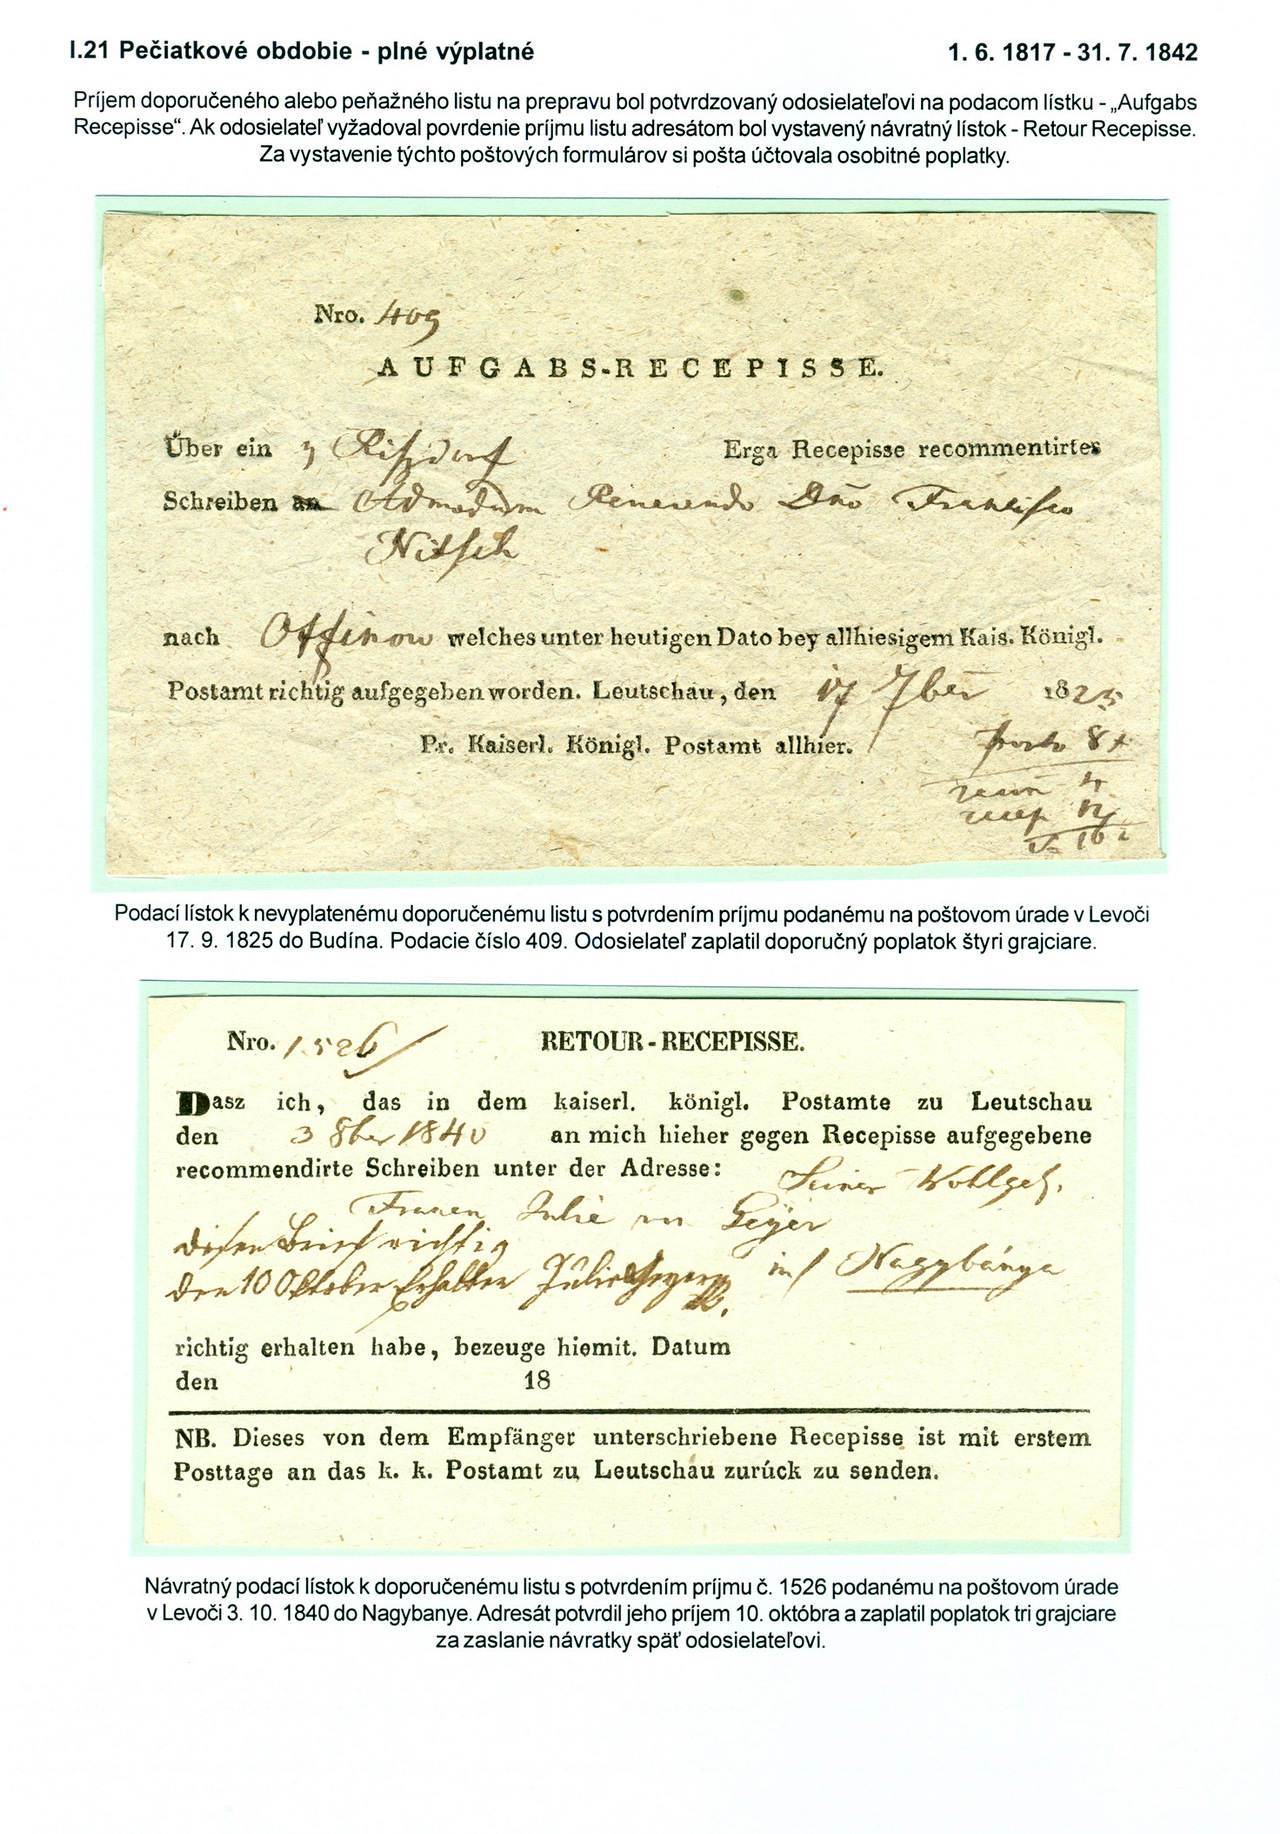 I.21 Pečiatkové obdobie - plné výplatné
1. 6. 1817 - 31. 7. 1842
Príjem doporučeného alebo peňažného listu na prepravu bol potvrdzovaný odosielateľovi na podacom lístku - „Aufgabs
Recepisse“. Ak odosielateľ vyžadoval povrdenie príjmu listu adresátom bol vystavený návratný lístok - Retour Recepisse.
Za vystavenie týchto poštových formulárov si pošta účtovala osobitné poplatky.
Nro. 409
AUFGABS-RECEPISSE.
Über ein Erga Recepisse recommentirtes
Schreiben an Admodum Reverendo Dno Francisco
Nitsch
nach welches unter heutigen Dato bey allhiesigem Kais. Königl.
Postamt richtig aufgegeben worden. Leutschau, den 17 7ber 1825
Pr. Kaiserl. Königl. Postamt allhier.
porto 8 x
recom 4
recep
Podací lístok k nevyplatenému doporučenému listu s potvrdením príjmu podanému na poštovom úrade v Levoči
17. 9. 1825 do Budína. Podacie číslo 409. Odosielateľ zaplatil doporučný poplatok štyri grajciare.
Nro. 1526 RETOUR-RECEPISSE.
Dasz ich, das in dem kaiserl. königl. Postamte zu Leutschau
den 3 8ber 1840 an mich hieher gegen Recepisse aufgegebene
recommendirte Schreiben unter der Adresse: Seiner Wohlgeb.
Frauen Julie von Geÿer
diesen Brief richtig
den 10 Oktober Erhalten Julie Geyer in Nagybánya
richtig erhalten habe, bezeuge hiemit. Datum
den 18
NB. Dieses von dem Empfänger unterschriebene Recepisse ist mit erstem
Posttage an das k. k. Postamt zu Leutschau zurück zu senden.
Návratný podací lístok k doporučenému listu s potvrdením príjmu č. 1526 podanému na poštovom úrade
v Levoči 3. 10. 1840 do Nagybanye. Adresát potvrdil jeho príjem 10. októbra a zaplatil poplatok tri grajciare
za zaslanie návratky späť odosielateľovi.